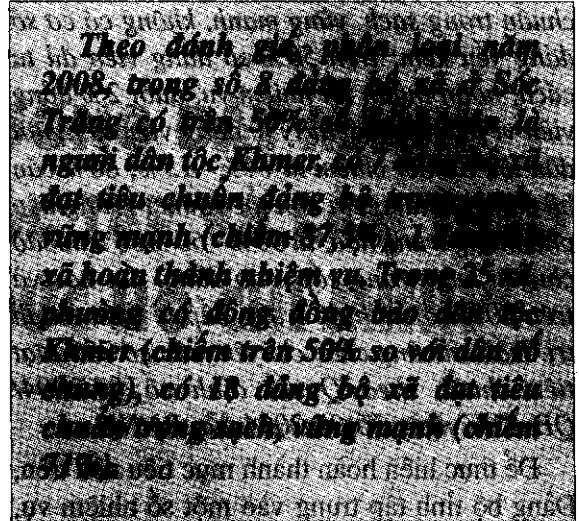 Theo đánh giá, phân loại năm
2008, trong số 8 đảng bộ xã ở Sóc
Trăng có trên 50% là
người dân tộc Khmer, có 7 xã
đạt tiêu chuẩn đảng bộ trong sạch
vững mạnh (chiếm 87,5%), 1
xã hoàn thành nhiệm vụ. Trong 25 xã,
phường có đông đồng bào dân tộc
Khmer (chiếm trên 50% so với dân số
chung), có 18 đảng bộ xã đạt tiêu
chuẩn trong sạch, vững mạnh (chiếm
Để thực hiện hoàn thành mục tiêu
Đảng bộ tỉnh tập trung vào một số nhiệm vụ,